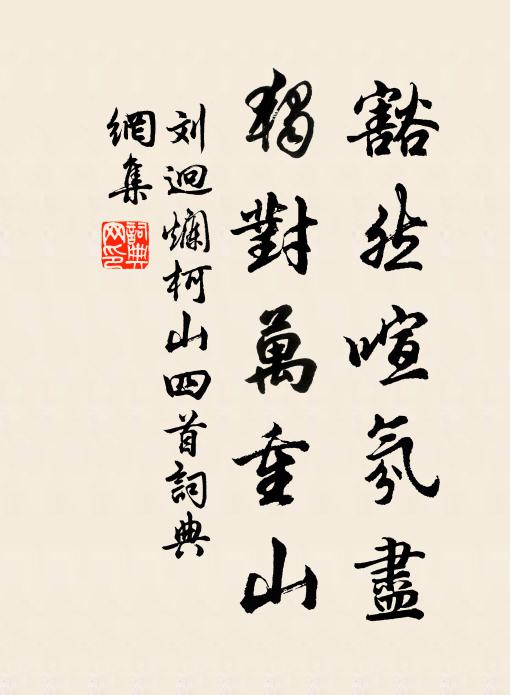 豁然喧氛盡
獨對萬重山
刘迥爛柯山四首詞典
網集
詞典
网印